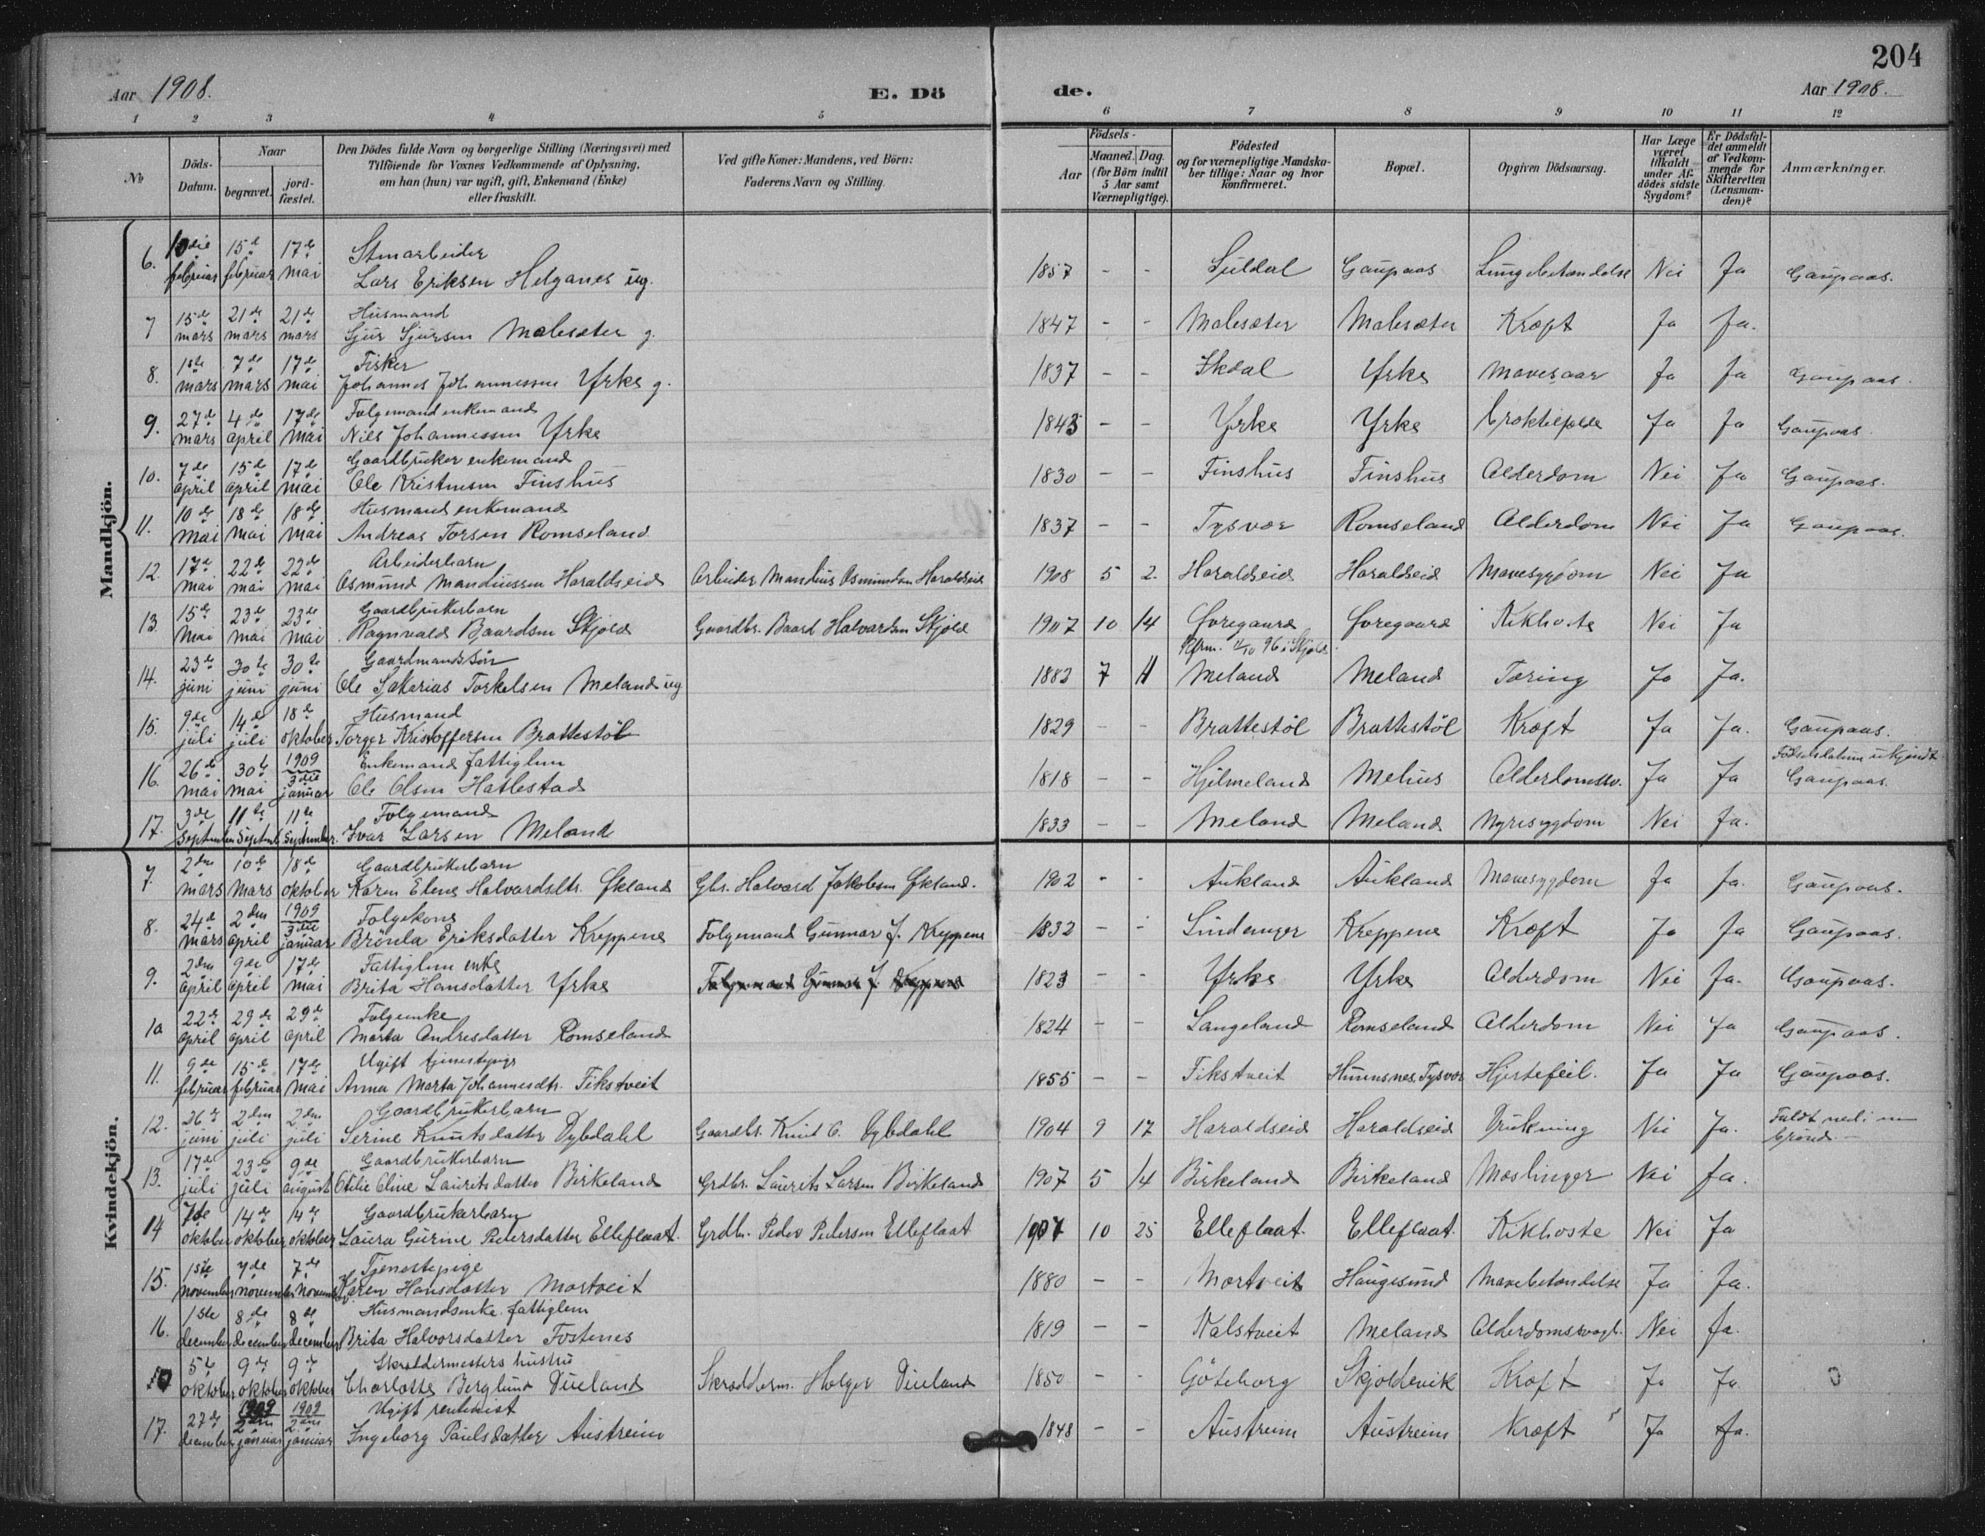 204
Aar 1908. E. Dö de. Aar 1908.
1 2 3 4 5 6 7 8 9 10 11 12
No
Döds-Datum.
Naar
begravet.
jord-fæstet.
Den Dödes fulde Navn og borgerlige Stilling (Næringsvei) med
Tilföiende for Voxnes Vedkommende af Oplysning,
om han (hun) var ugift, gift, Enkemand (Enke)
eller fraskilt.
Ved gifte Koner: Mandens, ved Börn:
Faderens Navn og Stilling.
Födsels-
Aar
Maaned. Dag.
(for Börn indtil
5 Aar samt
Værnepligtige).
Födested
og for værnepligtige Mandska-
ber tillige: Naar og hvor
konfirmeret.
Bopæl.
Opgiven Dödsaarsag.
Har Læge
været
tilkaldt
under Af-
dödes sidste
Sygdom?
Er Dödsfal-
det anmeldt
af Vedkom-
mende for
Skifteretten
(Lensman-
den)?
Anmærkninger.
Mandkjön.
6. 10die februar 15de februar 17de mai
Lars Eriksen Helganes ug. 1857 - - Suldal Gaupaas Lungebetændelse Nei Ja Gaupaas.
Husmand
7 15de mars 21de mars 21de mars Sjur Sjursen Malesæter g. 1847 - - Malesæter Malesæter Kræft Ja Ja.
Fisker
8. 1ste mars 7de mars 17de mai Johannes Johannessen Yrke g. 1837 - - Yrke Mavesaar Ja Ja Gaupaas.
Folgemand enkemand
9. 27de mars 4de april 17de mai Niels Johannessen Yrke 1843 - - Yrke Yrke Ja Ja Gaupaas
Gaardbruker enkemand
10. 7de april 15de april 17de mai Ole Kristensen Finshus 1830 - - Finshus Finshus Alderdom Nei Ja Gaupaas.
Husmand enkemand
11. 10de mai 18de mai 18de mai Andreas Torsen Romseland 1837 - - Tysvær Romseland Alderdom Nei Ja Gaupaas.
Arbeiderbarn
12. 17de mai 22de mai 22de mai Osmund Mandiussen Haraldseid Arbeider Mandius Osmundsen Haraldseid 1908 5 2. Haraldseid Haraldseid Mavesygdom Nei Ja
Gaardbrukerbarn
13. 15de mai 23de mai 23de mai Ragnvald Baardsen Skjold Gaardbr. Baard Halvardsen Skjold 1907 10 14 Øvregaard Øvregaard Kikhoste Nei Ja
Gaardmandssøn Kfrm. 4/10 96 i Skjold.
14. 23de juni 30te juni 30te juni Ole Sakarias Torkelsen Meland ug 1882 7 11 Meland Meland Tæring Ja Ja.
Husmand
15. 9de juli 14de juli 18de oktober Torger Kristoffersen Brattestøl 1829 - - Brattestøl Brattestøl Kræft Ja Ja. Gaupaas.
Enkemand fattiglem Fødselsdatum ukjendt
16. 26de mai 30te mai 1909 3die januar Ole Olsen Hatlestad 1818 - - Hjelmeland Melhus Alderdomssv. Ja Ja Gaupaas.
Folgemand
17. 3de September 11te Septemb. 11te September. Ivar Larsen Meland 1833 - - Meland Meland Nyresygdom Nei Ja.
Kvindekjön.
Gaardbrukerbarn
7. 2den mars 10de mars 18de oktober Karen Elene Halvardsdtr. Økland Gbr. Halvard Jakobsen Økland. 1902 - - Aukland Aukland Mavesygdom Ja Ja. Gaupaas.
Folgekone
8. 24de mars 2den april 1909 3die januar Brønla Eriksdatter Kreppene Folgemand Gunnar J. Kreppene 1832 - - Kreppene Kræft Ja Ja Gaupaas.
Fattiglem enke
9. 2den april 9de april 17de mai Brita Hansdatter Yrke Folgemand Gunnar J. Kreppene 1823 - - Yrke Yrke Alderdom Nei Ja. Gaupaas.
Folgeenke
10 22de april 29de april 29de april Marta Andreasdatter Romseland 1824 - - Langeland Romseland Alderdom Nei Ja Gaupaas.
Ugift tjenestepige
11. 9de februar 15de februar 17de mai Anna Marta Johannesdtr. Fikstveit 1855 - - Fikstveit Hjertefeil. Ja Ja Gaupaas.
Gaardbrukerbarn
12. 26de juni 2den juli 2den juli Serine Knutsdatter Dybdahl Gaardbr. Knut O. Dybdahl 1904 9 17 Haraldseid Haraldseid Drukning Nei Ja. Faldt ned i en brønd.
Gaardbrukerbarn
13. 17de juli 23de juli 9de august Otilie Oline Lauritsdatter Birkeland Grdbr. Laurits Larsen Birkeland 1907 5 14 Birkeland Birkeland Mæslinger Nei Ja.
Gaardbrukerbarn
14 7de oktober 14de oktober 14de oktober Laura Gurine Pedersdatter Elleflaat. Grdbr. Peder Pedersen Elleflaat 1907 10 25 Elleflaat. Elleflaat. Kikhoste Nei Ja
Tjenestepige
15. 1ste november 7de november 7de november Karen Hansdatter Mortveit 1880 - - Mortveit Haugesund Mavebetændelse Ja Ja.
Husmandsenke fattiglem
16. 1ste december 8de december 8de december Brita Halvorsdatter Fostenes 1819 - - Valstveit Meland Alderdomssvagh. Nei Ja.
Skræddermesters hustru
5te oktober 9de oktober 9de oktober Charlotte Berglund Dueland Skrædderm. Holger Dueland 1850 - - Göteborg Skjoldevik Kræft Ja Ja
Ugift rentenist
17. 27de december 1909 2den januar 1909 2den januar Ingeborg Paulsdatter Austreim 1848 - - Austreim Austreim Kræft Ja Ja.